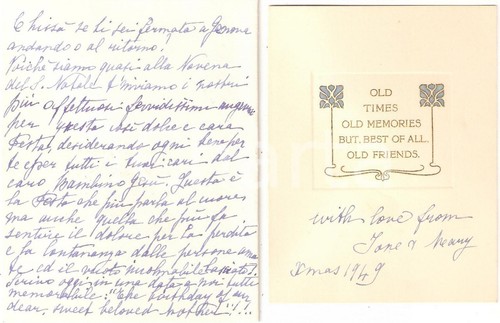 Chissà se ti sei fermata a Genova
andando o al ritorno!
Poichè siamo quasi alla Novena
del S. Natale t'inviamo i nostri
più affettuosi fervidissimi auguri
per questa così dolce e cara
festa, desiderando ogni bene per
te e per tutti i tuoi cari dal
caro Bambino Gesù. Questa è
la festa che più parla al cuore
ma anche quella che più fa
sentire il dolore per la perdita
e la lontananza dalle persone ama
te ed il vuoto incolmabile lasciato!
Scrivo oggi in una data a noi tutti
memorabile: "The birthday of our
dear, sweet beloved mother"!!!
OLD
TIMES
OLD MEMORIES
BUT, BEST OF ALL,
OLD FRIENDS.
with love from
Jane & Meary
Xmas 1949